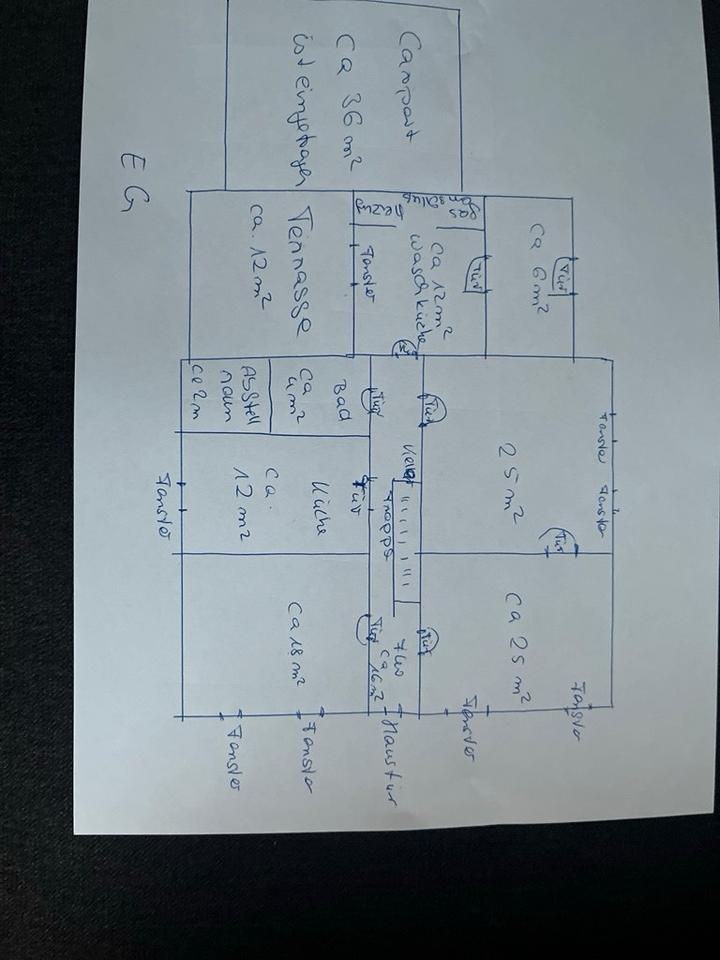 EG
Carport
Ca 36 m²
ist eingetragen
Terrasse
ca. 12 m²
Gas
Anschluss
heizung
Ca 12 m²
waschküche
Fenster
Tür
Ca 6 m²
Tür
Tür
Bad
Ca
4 m²
Abstell
raum
ca 2m
Tür
Tür
25 m²
Fenster
Fenster
Tür
Küche
Ca.
12 m²
Tür
Fenster
Keller
Treppe
Ca 18 m²
Tür
Flur
Ca
16 m²
Tür
Ca 25 m²
Fenster
Fenster
Haustür
Fenster
Fenster